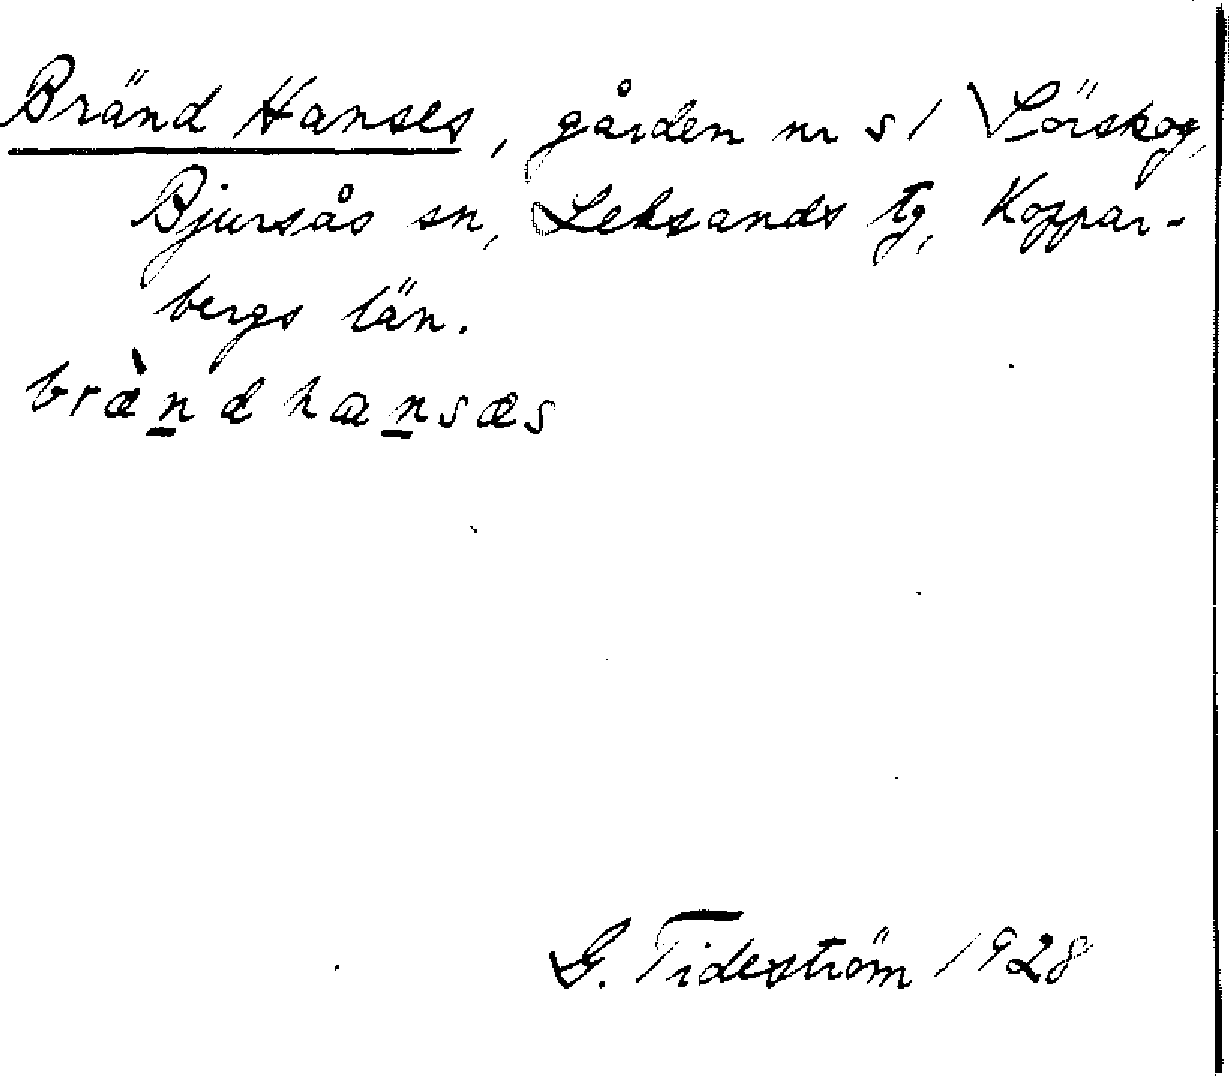 Bränd Hanses, gården nr 51 Lörskog,
Bjursås sn, Leksands tg, Koppar-
bergs län.
bræ̀n̲dhan̲sæs
G. Tideström 1928